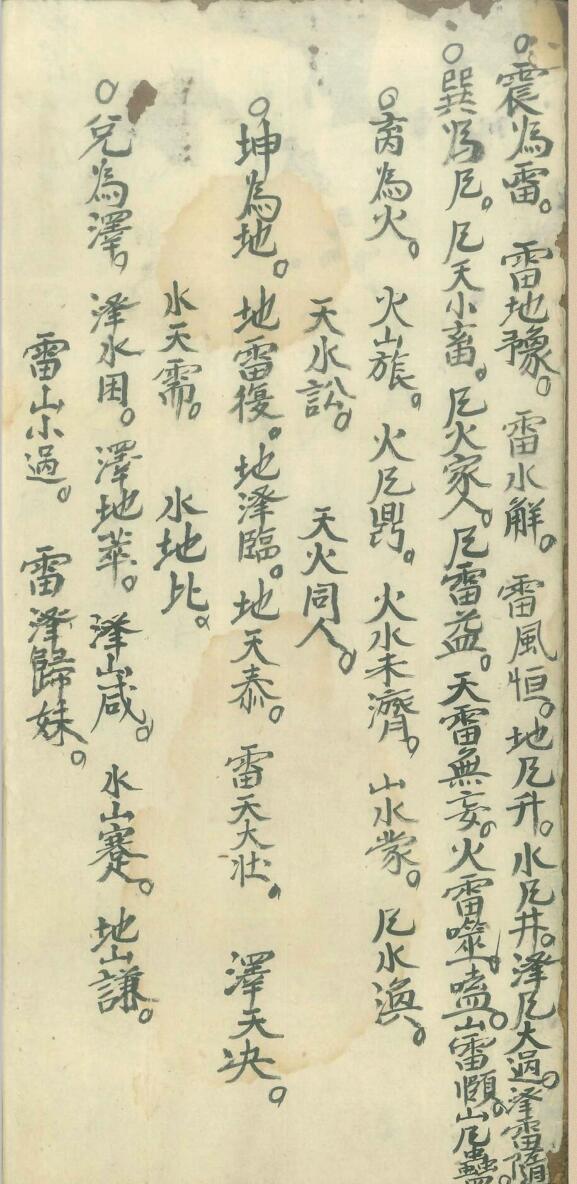 ○震為雷。雷地豫。雷水解。雷風恒。地凬升。水凬井。澤凬大過。澤雷隨
○巽為凬。凬天小畜。凬火家人。凬雷益。天雷無妄。火雷噬嗑。山雷頤。山凬蠱。
○离為火。火山旅。火凬鼎。火水未濟。山水蒙。凬水渙。
天水訟。天火同人。
○坤為地。地雷復。地澤臨。地天泰。雷天大壯。澤天决。
水天需。水地比。
○兌為澤。澤水困。澤地萃。澤山咸。水山蹇。地山謙。
雷山小過。雷澤歸妹。